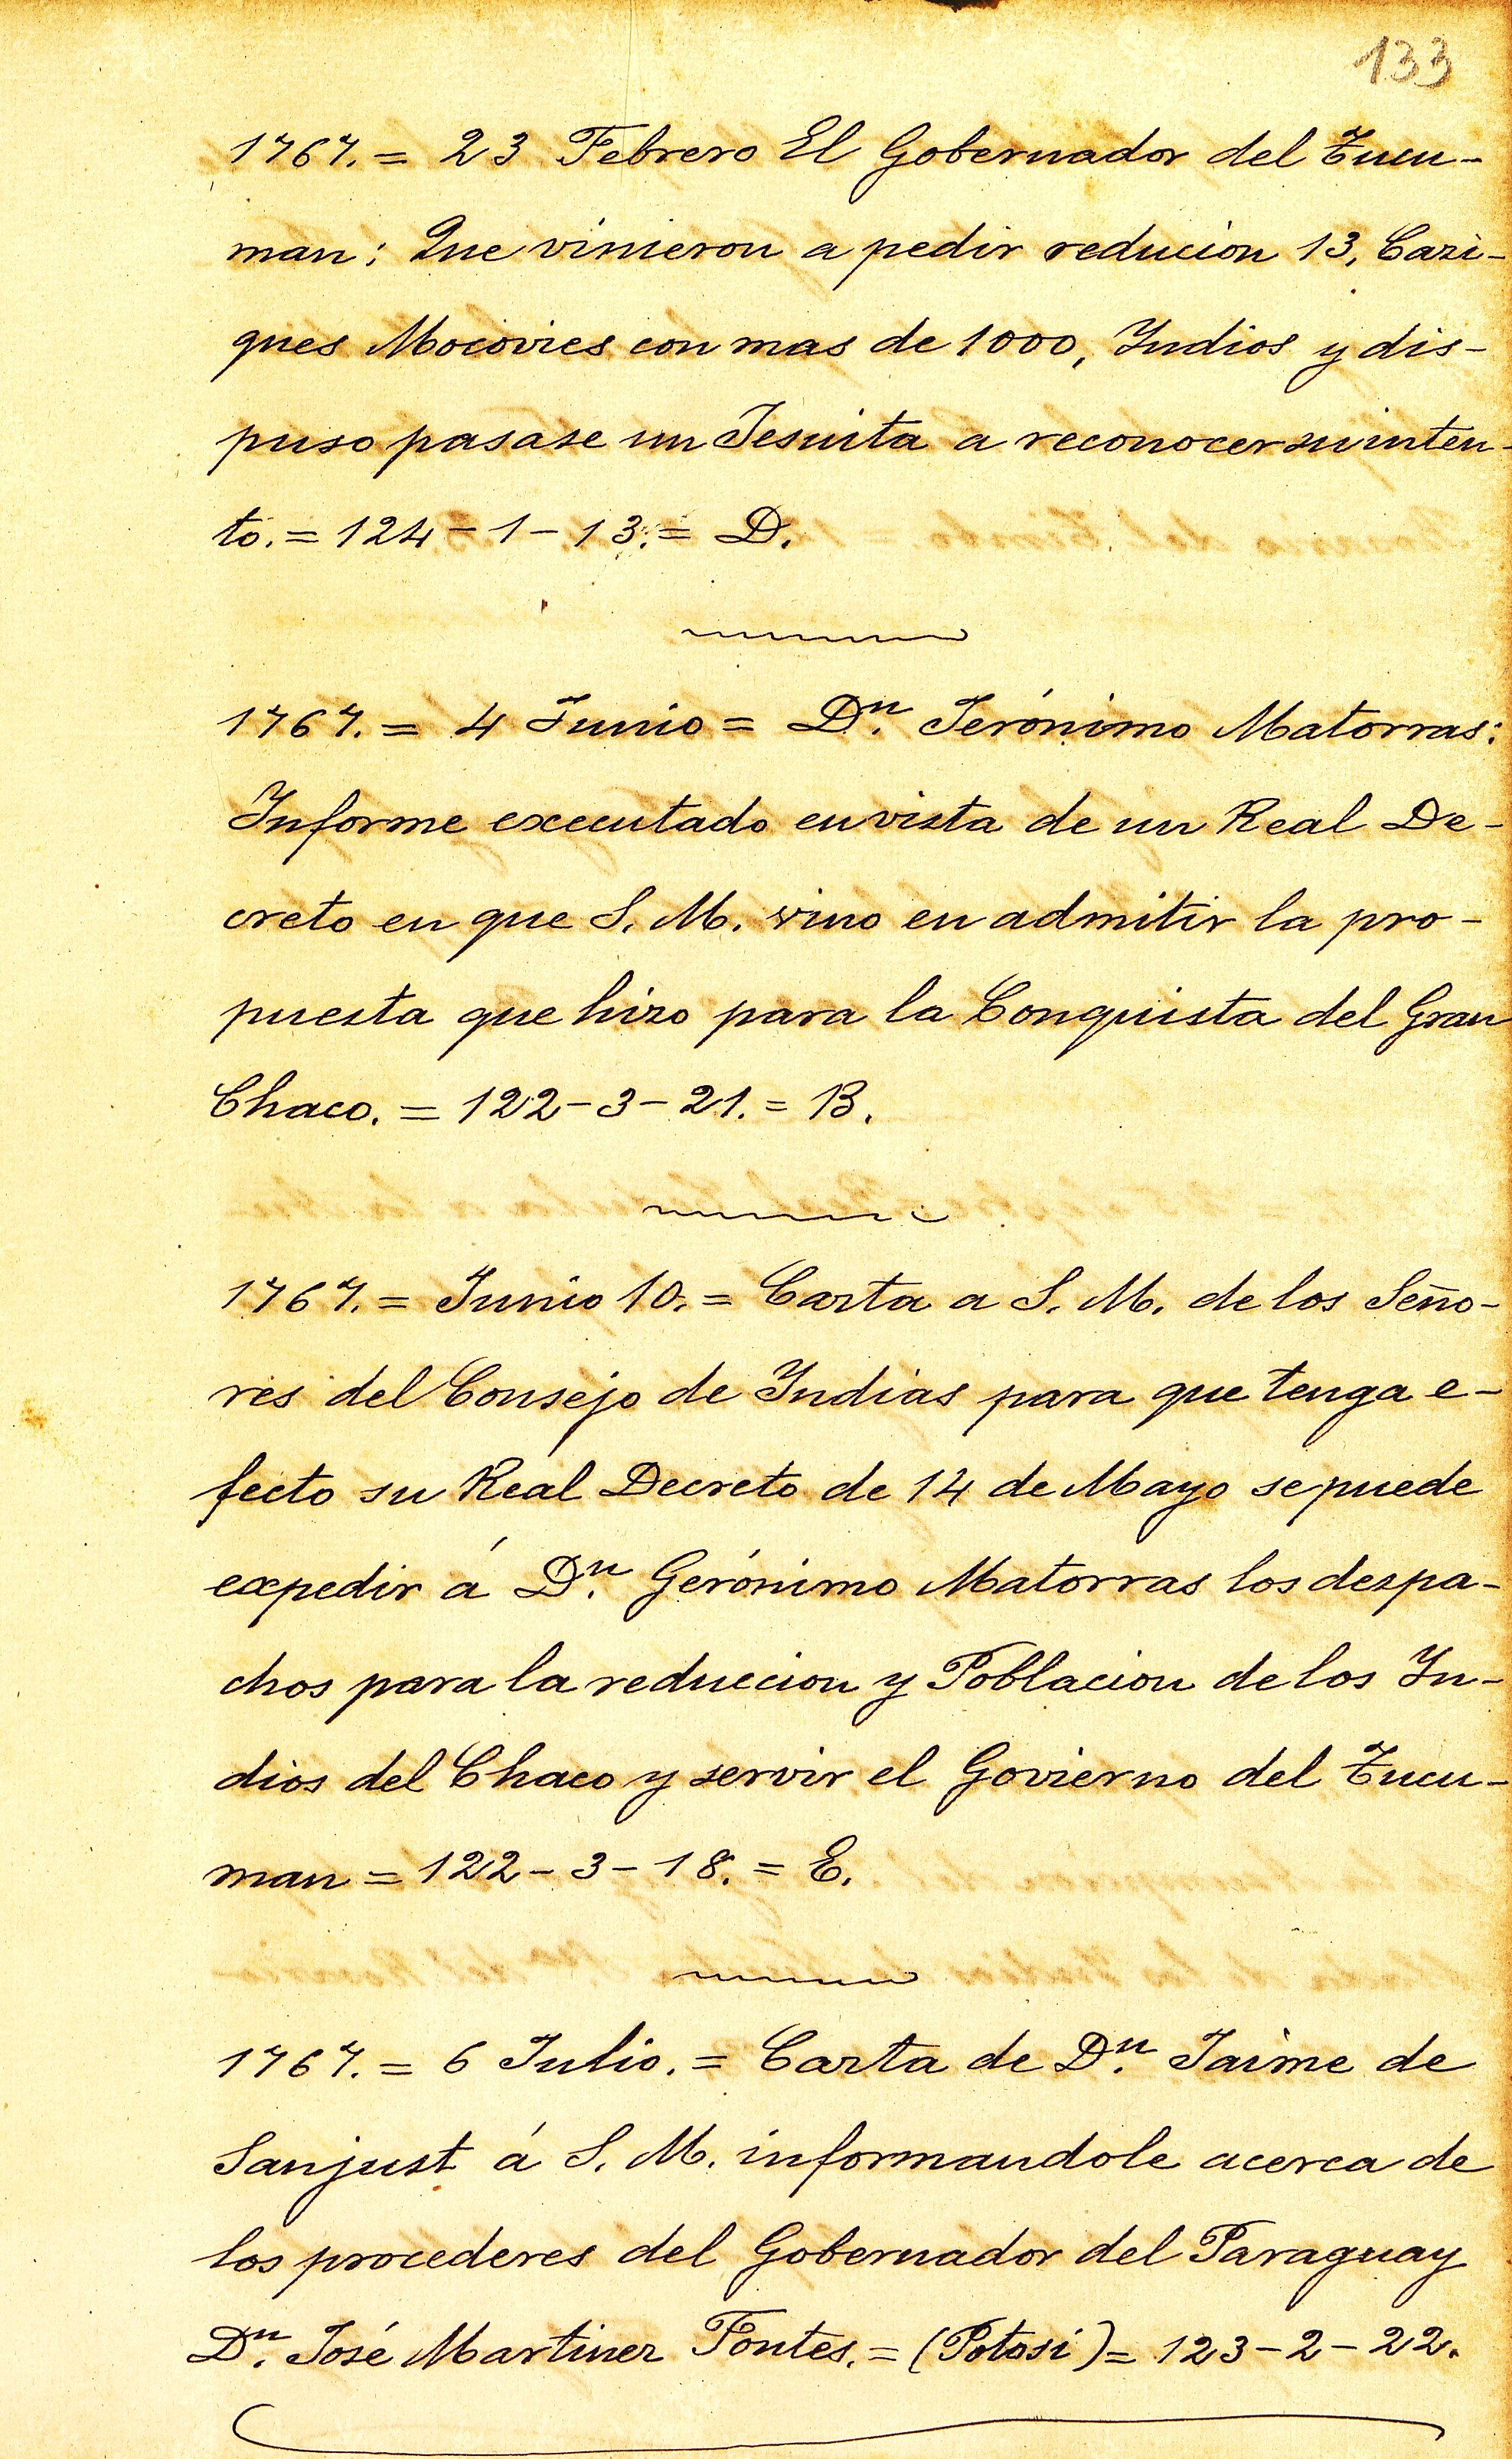 133
1767.= 23 Febrero El Gobernador del Tucu-
man: Que vinieron a pedir reducion 13, Cazi-
ques Mocovies con mas de 1000, Indios y dis-
puso pasase un Jesuita a reconocer su inten-
to.= 124-1-13.= D.
1767.= 4 Junio = Dn. Jerónimo Matorras:
Informe executado en vista de un Real De-
creto en que S. M. vino en admitir la pro-
puesta que hizo para la Conquista del Gran
Chaco.= 122-3-21.= B.
1767.= Junio 10.= Carta a S. M. de los Seño-
res del Consejo de Indias para que tenga e-
fecto su Real Decreto de 14 de Mayo se puede
expedir á Dn. Gerónimo Matorras los despa-
chos para la reduccion y Poblacion de los In-
dios del Chaco y servir el Govierno del Tucu-
man = 122-3-18.= E.
1767.= 6 Julio.= Carta de Dn. Jaime de
Sanjust á S. M. informandole acerca de
los procederes del Gobernador del Paraguay
Dn. José Martinez Fontes.= (Potosi)= 123-2-22.